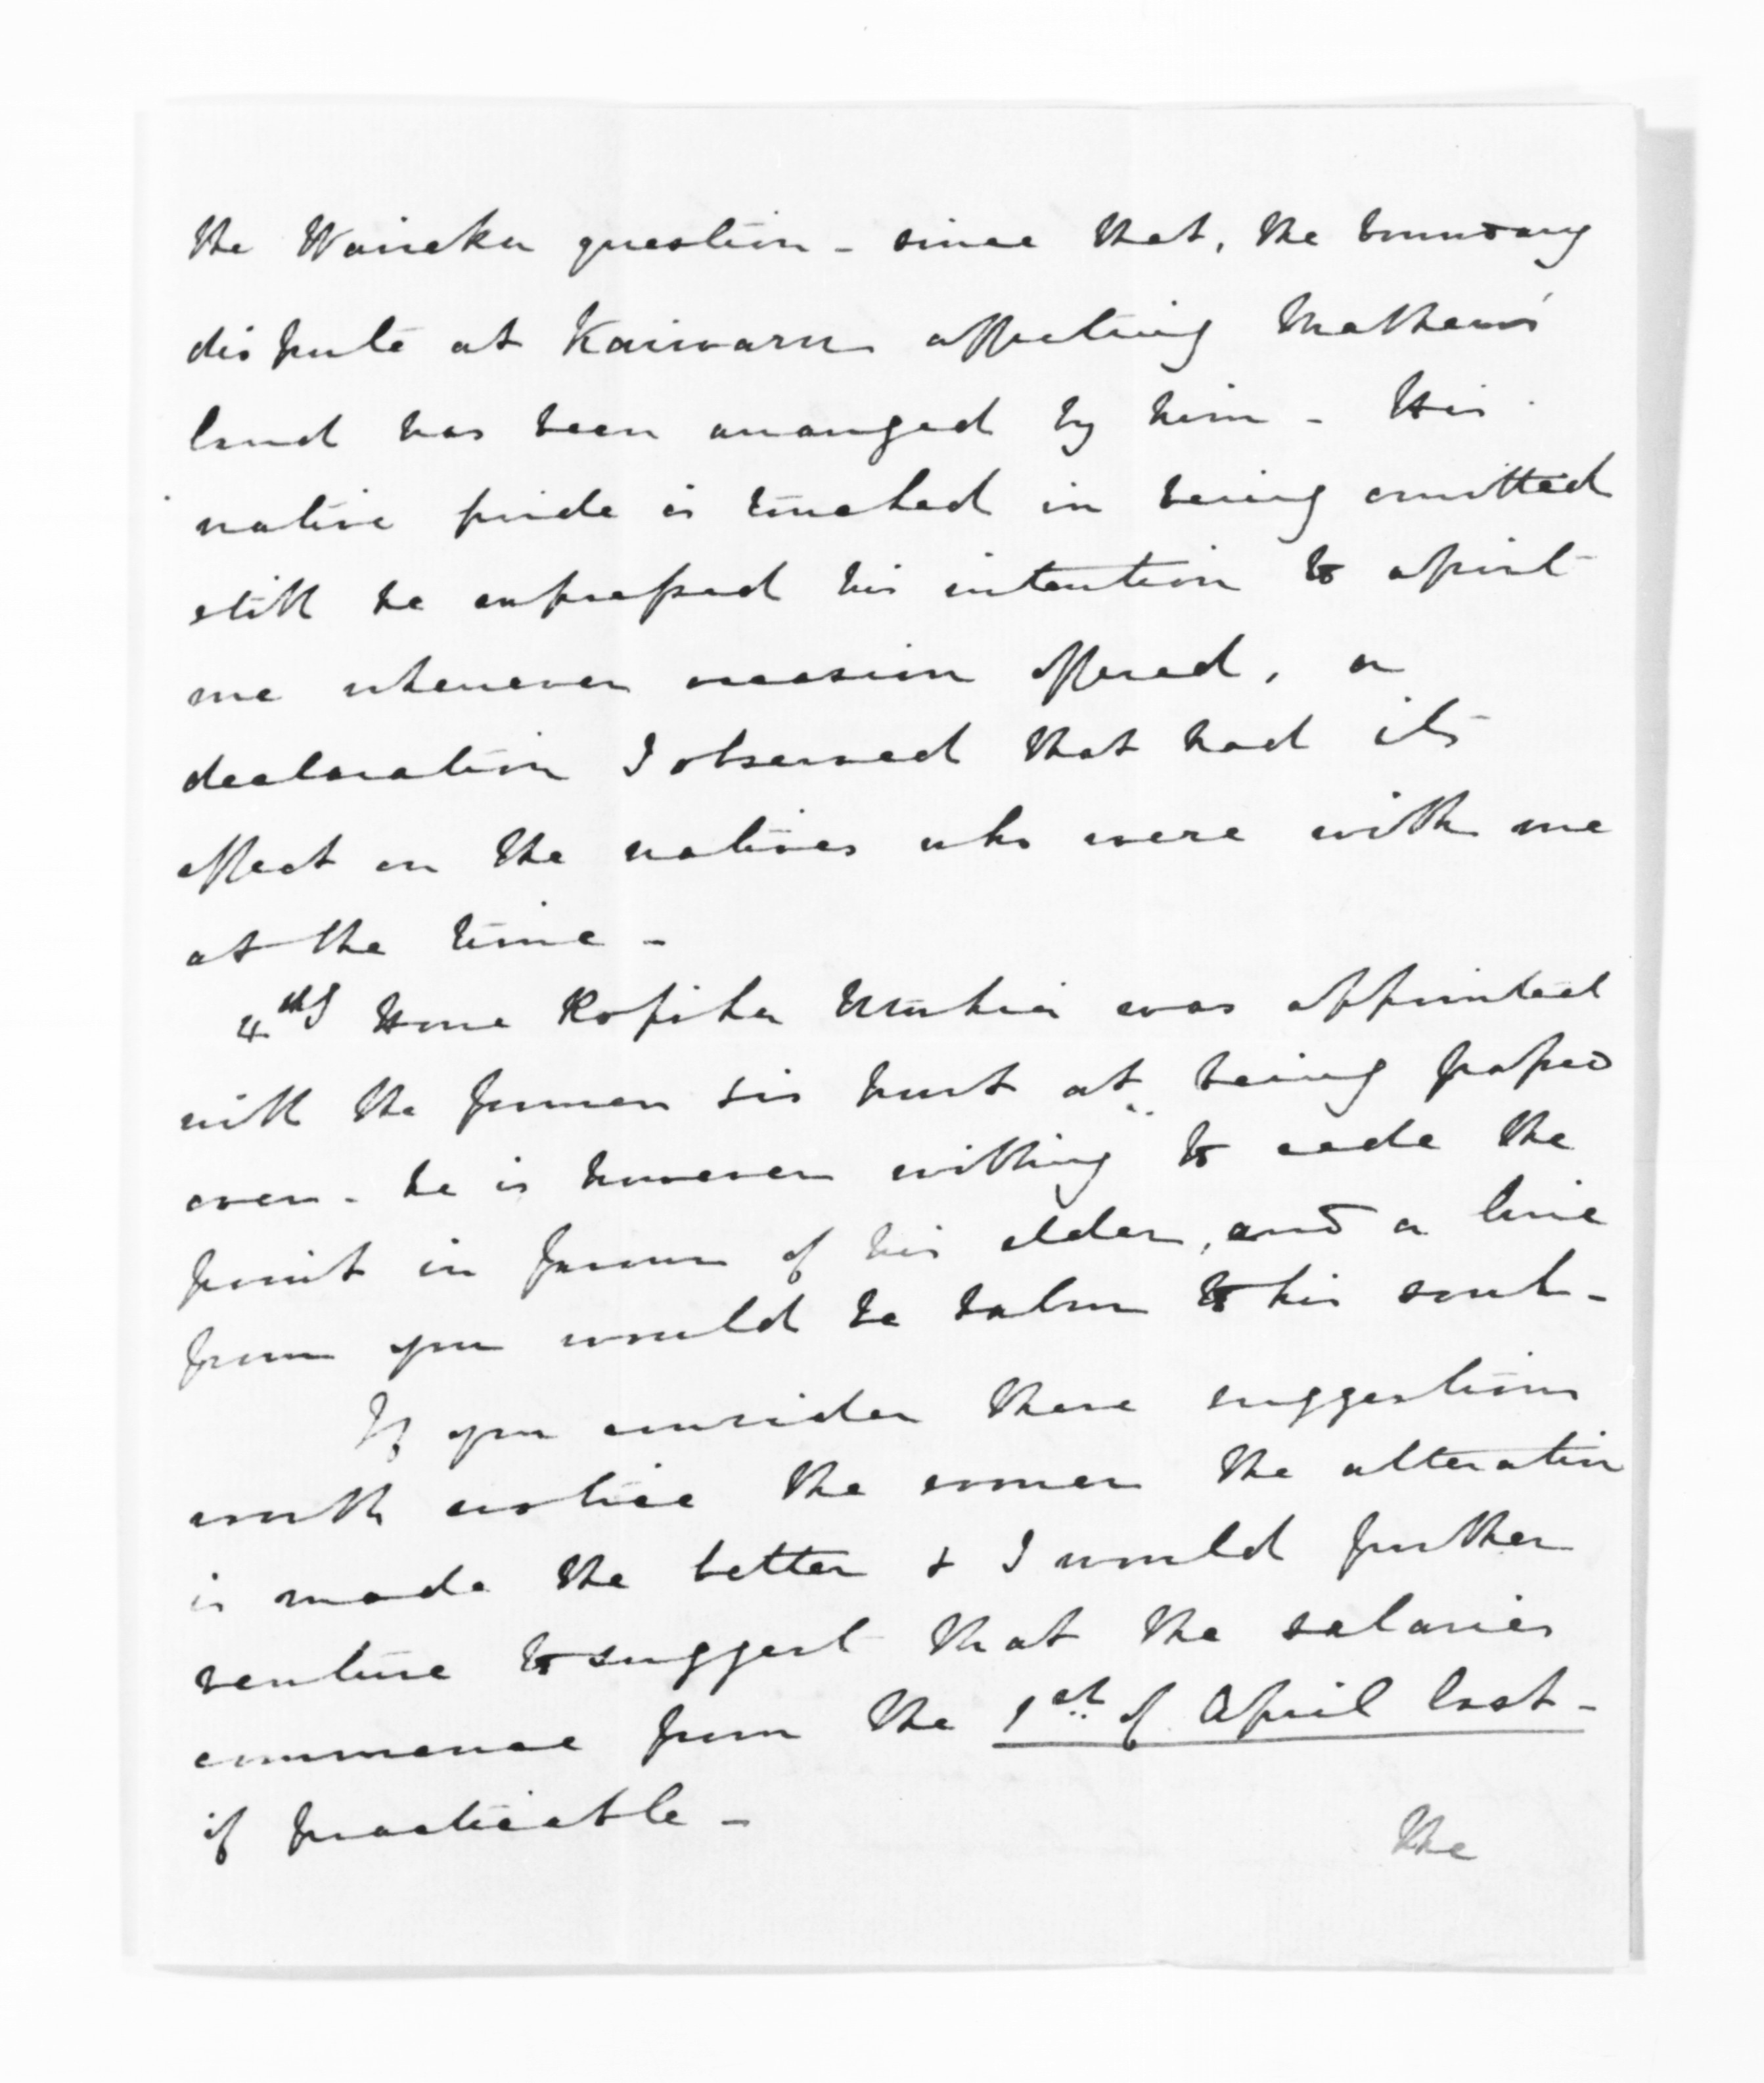 the Waireka question - since that, the boundary
dispute at Kaiwaru affecting Mathews'
land has been arranged by him - His
native pride is touched in being omitted
still he expressed his intention to assist
me whenever occasion offered, a
declaration I observed that had its
effect on the natives who were with me
at the time -
4thly Hone Ropiha was appointed
with the former & is hurt at being passed
over - he is however willing to cede the
point in favour of his elder, and a line
from you would be balm to his soul -
If you consider these suggestions
worth notice the sooner the alteration
is made the better & I would further
venture to suggest that the salaries
commence from the 1st of April last -
if practicable -
the